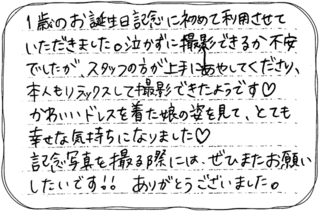 1歳のお誕生日記念に初めて利用させて
いただきました。泣かずに撮影できるか不安
でしたが、スタッフの方が上手にあやしてくださり、
本人もリラックスして撮影できたようです♡
かわいいドレスを着た娘の姿を見て、とても
幸せな気持ちになりました♡
記念写真を撮る際には、ぜひまたお願い
したいです!! ありがとうございました。